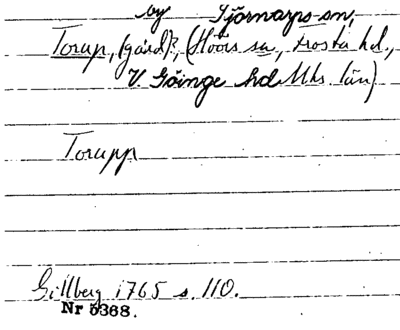 by Tjörnarps sn,
Torup, (gård)?, (Höörs sn, Frosta hd.,
V. Göinge hd Mhs. län)
Torupp
Gillberg 1765 s. 110.
Nr 5368.